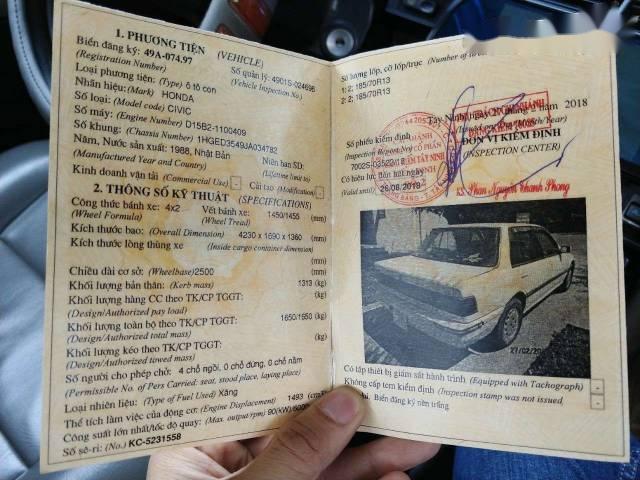 1. PHƯƠNG TIỆN (VEHICLE)
Biển đăng ký: 49A-074.97
(Registration Number)
Số quản lý: 4901S-024696
(Vehicle Inspection No.)
Loại phương tiện: (Type) ô tô con
Nhãn hiệu: (Mark) HONDA
Số loại: (Model code) CIVIC
Số máy: (Engine Number) D15B2-1100409
Số khung: (Chassis Number) 1HGED3549JA034782
Năm, Nước sản xuất: 1988, Nhật Bản
(Manufactured Year and Country)
Niên hạn SD:
(Lifetime limit to)
Kinh doanh vận tải (Commercial Use) - Cải tạo (Modification) -
2. THÔNG SỐ KỸ THUẬT (SPECIFICATIONS)
Công thức bánh xe: 4x2
(Wheel Formula)
Vết bánh xe: 1450/1455 (mm)
(Wheel Tread)
Kích thước bao: (Overall Dimension) 4230 x 1690 x 1360 (mm)
Kích thước lòng thùng xe (Inside cargo container dimension)
(mm)
Chiều dài cơ sở: (Wheelbase) 2500 (mm)
Khối lượng bản thân: (Kerb mass) 1313 (kg)
Khối lượng hàng CC theo TK/CP TGGT: (kg)
(Design/Authorized pay load)
Khối lượng toàn bộ theo TK/CP TGGT: 1650/1650 (kg)
(Design/Authorized total mass)
Khối lượng kéo theo TK/CP TGGT: (kg)
(Design/Authorized towed mass)
Số người cho phép chở: 4 chỗ ngồi, 0 chỗ đứng, 0 chỗ nằm
(Permissible No. of Pers Carried: seat, stood place, laying place)
Loại nhiên liệu: (Type of Fuel Used) Xăng
Thể tích làm việc của động cơ: (Engine Displacement) 1493
Công suất lớn nhất/tốc độ quay: (Max. output/rpm) 90(kW)
Số sê-ri: (No.) KC-5231558
Số lượng lốp, cỡ lốp/trục (Number of
1: 2; 185/70R13
2: 2; 185/70R13
Tây Ninh, ngày tháng 2 năm 2018
Số phiếu kiểm định
(Inspection Report No)
7002S-03523/18
ĐƠN VỊ KIỂM ĐỊNH
(INSPECTION CENTER)
Có hiệu lực đến hết ngày
(Valid until) 26/08/2018
KS. Phan Nguyễn Thanh Phong
21/02/20
Có lắp thiết bị giám sát hành trình (Equipped with Tachograph) -
Không cấp tem kiểm định (Inspection stamp was not issued) -
Biển đăng ký nền trắng